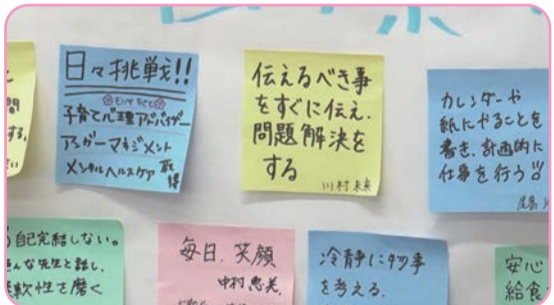 日々挑戦!!
子育て心理アドバイザー
アンガーマネジメント
メンタルヘルスケア 取得
伝えるべき事
をすぐに伝え.
問題解決を
する
川村未来
カレンダーや
紙にやることを
書き、計画的に
仕事を行う
自己完結しない。
んな先生と話し、
軟性を磨く
毎日、笑顔
中村恵美
冷静に物事
を考える。
安心
給食